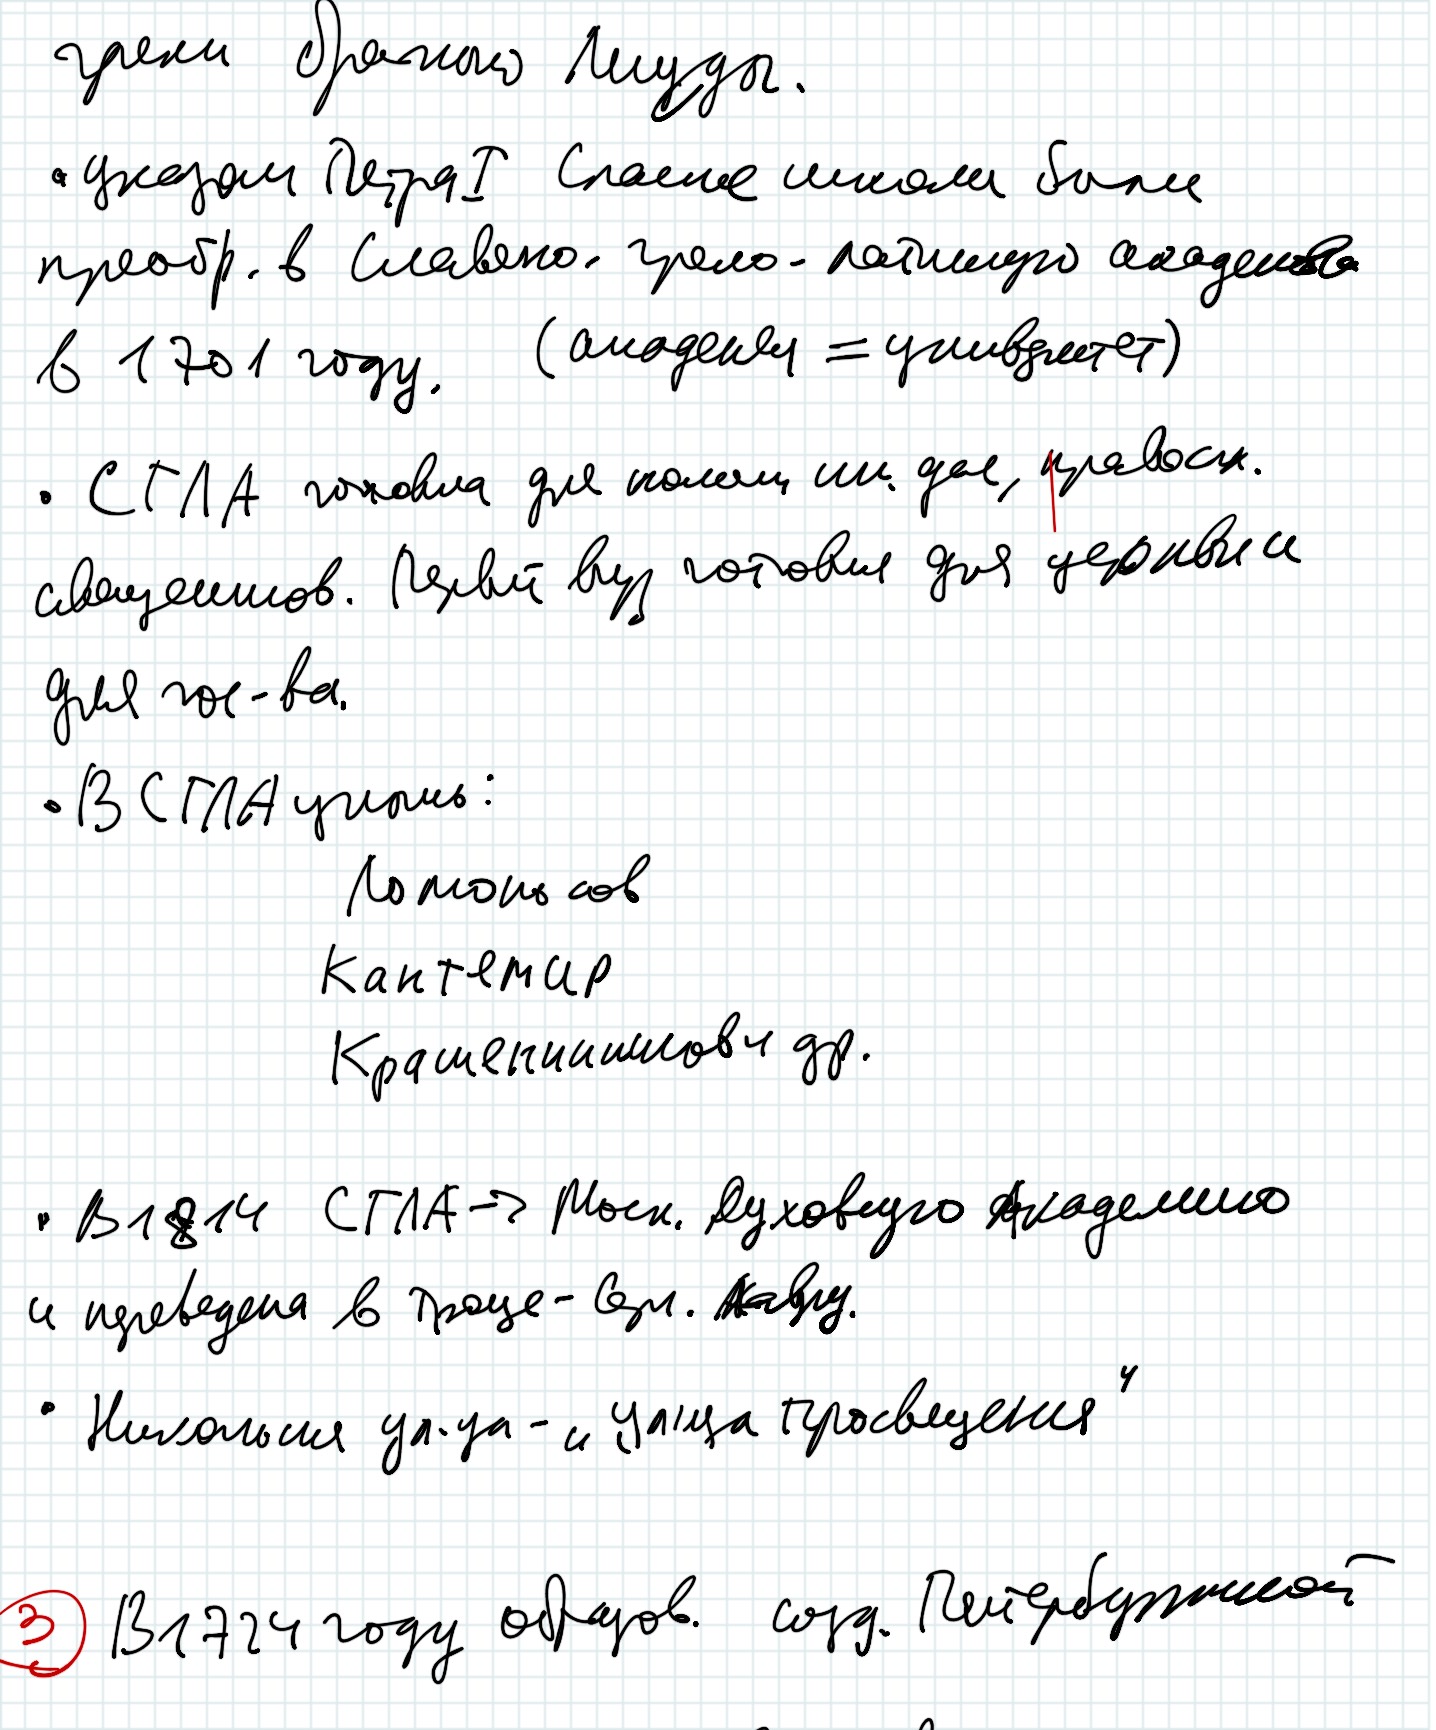 греки братья Лихуды.
• указом Петра I Спасские школы были
преобр. в Славяно-греко-латинскую академию
в 1701 году. (академия = университет)
• СГЛА готовила для полит. дел, правосл.
священников. Первый вуз готовил для церкви и
для гос-ва.
• В СГЛА учились:
Ломоносов
Кантемир
Крашенинников и др.
• В 1814 СГЛА → Моск. Духовную Академию
и переведена в Троице-Серг. лавру.
• Никольская улица - „Улица Просвещения"
3 В 1724 году образов. созд. Петербургской